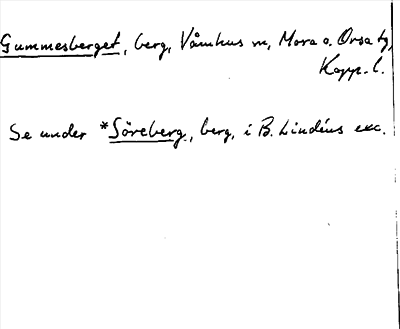 Gummesberget, berg, Våmhus sn, Mora o. Orsa tg,
Kopp. l.
Se under *Söreberg, berg, i B. Lindéns exc.